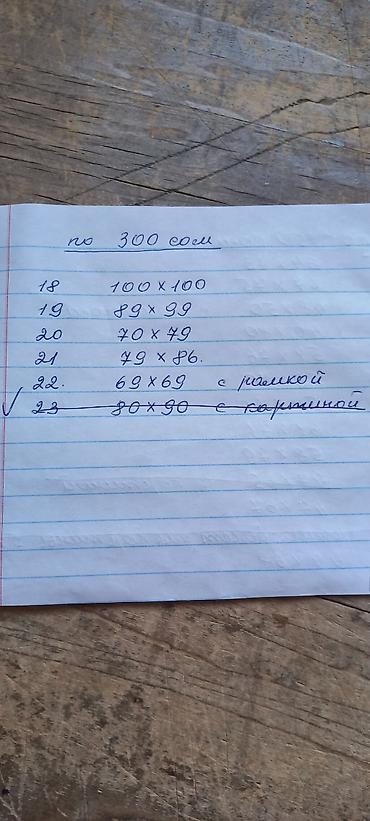 по 300 сом
18 100 × 100
19 89 × 99
20 70 × 79
21 79 × 86.
22. 69 × 69 с рамкой
✓ 23 80 × 90 с картиной